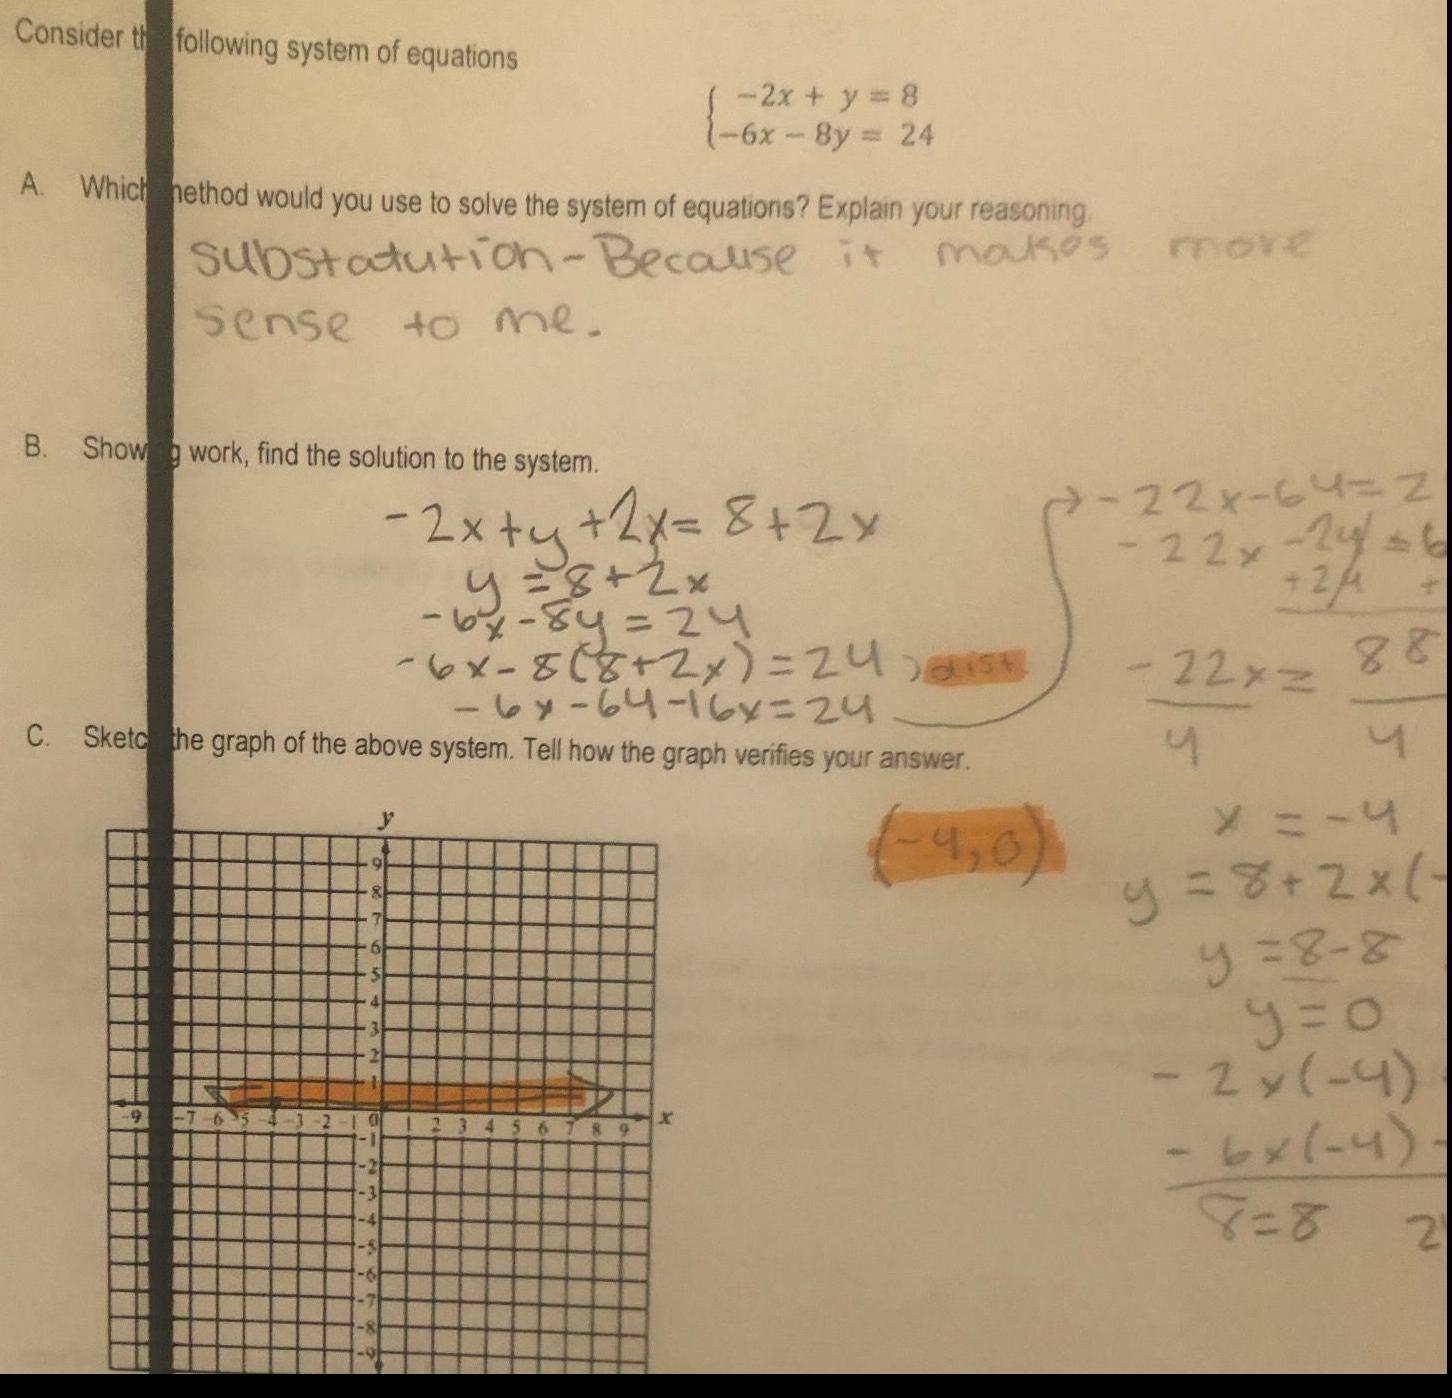 Consider th following system of equations
-2x + y = 8
-6x - 8y = 24
A. Which method would you use to solve the system of equations? Explain your reasoning.
Substatution - Because it makes more
sense to me.
B. Showing work, find the solution to the system.
-2x+y+2x=8+2x
y=8+2x
-6x-8y=24
-6x-8(8+2x)=24 dist.
-6x-64-16x=24
-22x-64=2
-22x
-22x= 88
4 4
x=-4
y=8+2x(-
y=8-8
y=0
-2x(-4)
-6x(-4)-
8=8 2
C. Sketch the graph of the above system. Tell how the graph verifies your answer.
(-4,0)
y
9
8
7
6
5
4
3
2
1
-9 -7 -6 -5 -4 -3 -2 -1 0 1 2 3 4 5 6 7 8 9 x
-1
-2
-3
-4
-5
-6
-7
-8
-9